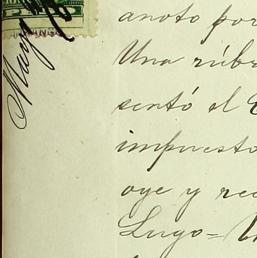 May
anoto por
Una rúbr
sentó el
impuesto
oye y rec
Lugo=